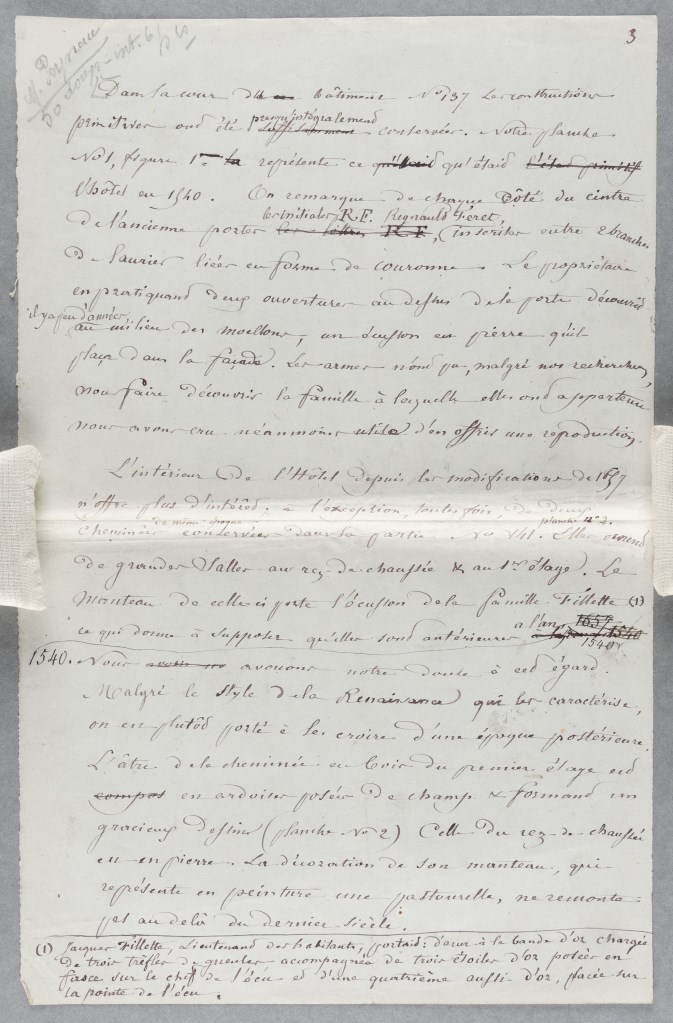 3
Dans la cour du bâtiment No 137 les constructions
presqu'intégralement
primitives ont été suffisamment conservées. Notre planche
No 1, figure 1re la représente ce qu'était qu'étaid l'état primitif
l'hôtel en 1540. On remarque de chaque Côté du cintre
les initiales R.F. Regnauld Féret,
de l'ancienne porter les lettres R F, (inscrites entre 2 branches
de laurier liées en forme de couronne. Le propriétaire
en pratiquand deux ouvertures au dessus de la porte découvrid
il y a peu d'années,
au milieu des moellons, un écusson en pierre qu'il
plaça dans la façade. Les armes n'ond pu, malgré nos recherches,
nous faire découvrir la famille à laquelle elles ond appartenu
nous avons cru néanmoins utile d'en offrir une reproduction.
L'intérieur de l'Hôtel depuis les modifications de 1657
n'offre plus d'intérêd. à l'exception, toutes fois, de deux
même époque planche no 2.
Cheminées conservées dans la partie No 141. Elles ornend
de grandes Salles au rez-de-chaussée & au 1er étage. Le
Manteau de celle ci porte l'écusson de la famille Fillette (1)
a l'an 1657
ce qui donne à supposer qu'elles sond antérieures 1540
1540
1540. Nous avouons notre doute à ced égard.
Malgré le Style de la Renaissance qui les caractérise,
on en plutôd porté à les croire d'une époque postérieure.
L'âtre de la cheminée en bois du premier étage est
compos en ardoises posées de champ & formand un
gracieux dessins (planche No 2) Celle du rez-de-chaussée
en en pierre. La décoration de son manteau, qui
représente en peinture une pastourelle, ne remonte
pas au delà du dernier siècle.
(1) Jacques Fillette, Lieutenand des habitants, portait: d'azur à la bande d'or chargée
De trois trèfles de gueules accompagnée de trois étoiles d'or posées en
fasce sur le chef de l'écu et d'une quatrième aussi d'or, placée sur
la pointe de l'écu.